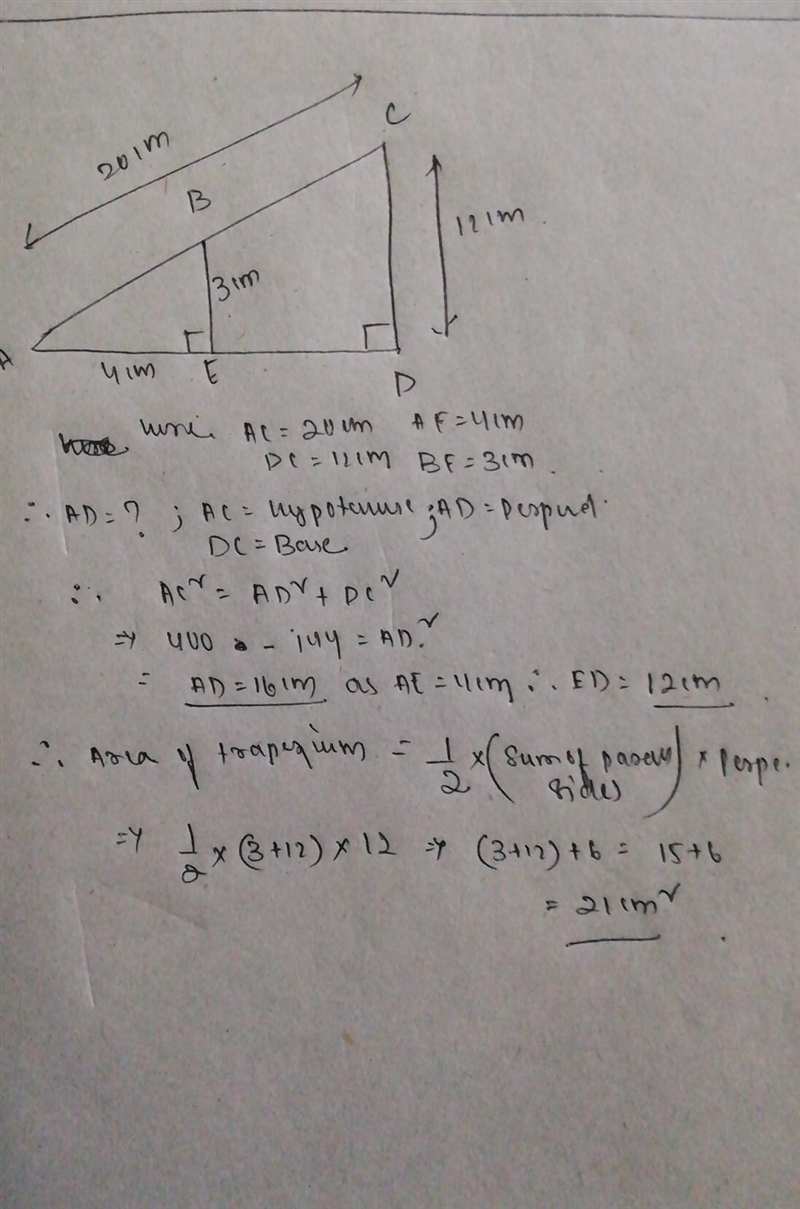 20 cm
C
B
12 cm.
3 cm
A
4 cm E
D
AC = 20 cm AE = 4 cm
DC = 12 cm BE = 3 cm.
∴ AD = ? ; AC = Hypotenuse ; AD = Perpend.
DC = Base
∴ AC² = AD² + DC²
⇒ 400 - 144 = AD.²
= AD = 16 cm as AE = 4 cm ∴ ED = 12 cm.
∴ Area of trapezium = 1/2 × (Sum of sides) × Perpe.
⇒ 1/2 × (3+12) × 12 ⇒ (3+12) + 6 = 15+6
= 21 cm².